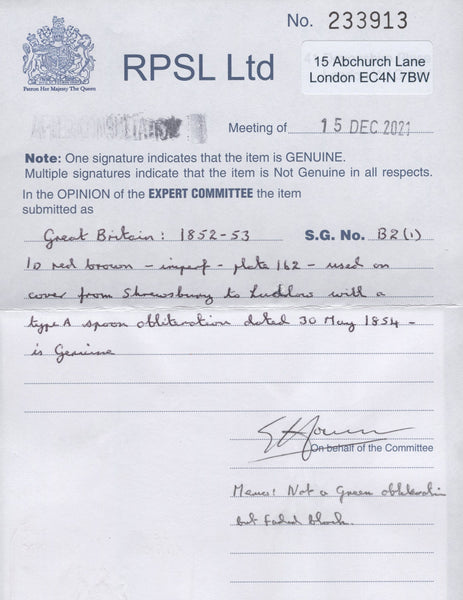 No. 233913
15 Abchurch Lane
London EC4N 7BW
Patron Her Majesty The Queen
RPSL Ltd
Meeting of 15 DEC 2021
Note: One signature indicates that the item is GENUINE.
Multiple signatures indicate that the item is Not Genuine in all respects.
In the OPINION of the EXPERT COMMITTEE the item
submitted as
Great Britain: 1852-53 S.G. No. B2(1)
1D red brown - imperf - plate 162 - used on
cover from Shrewsbury to Ludlow with a
type A spoon obliteration dated 30 May 1854 -
is Genuine
On behalf of the Committee
Memo: Not a Green obliteration
but faded black.